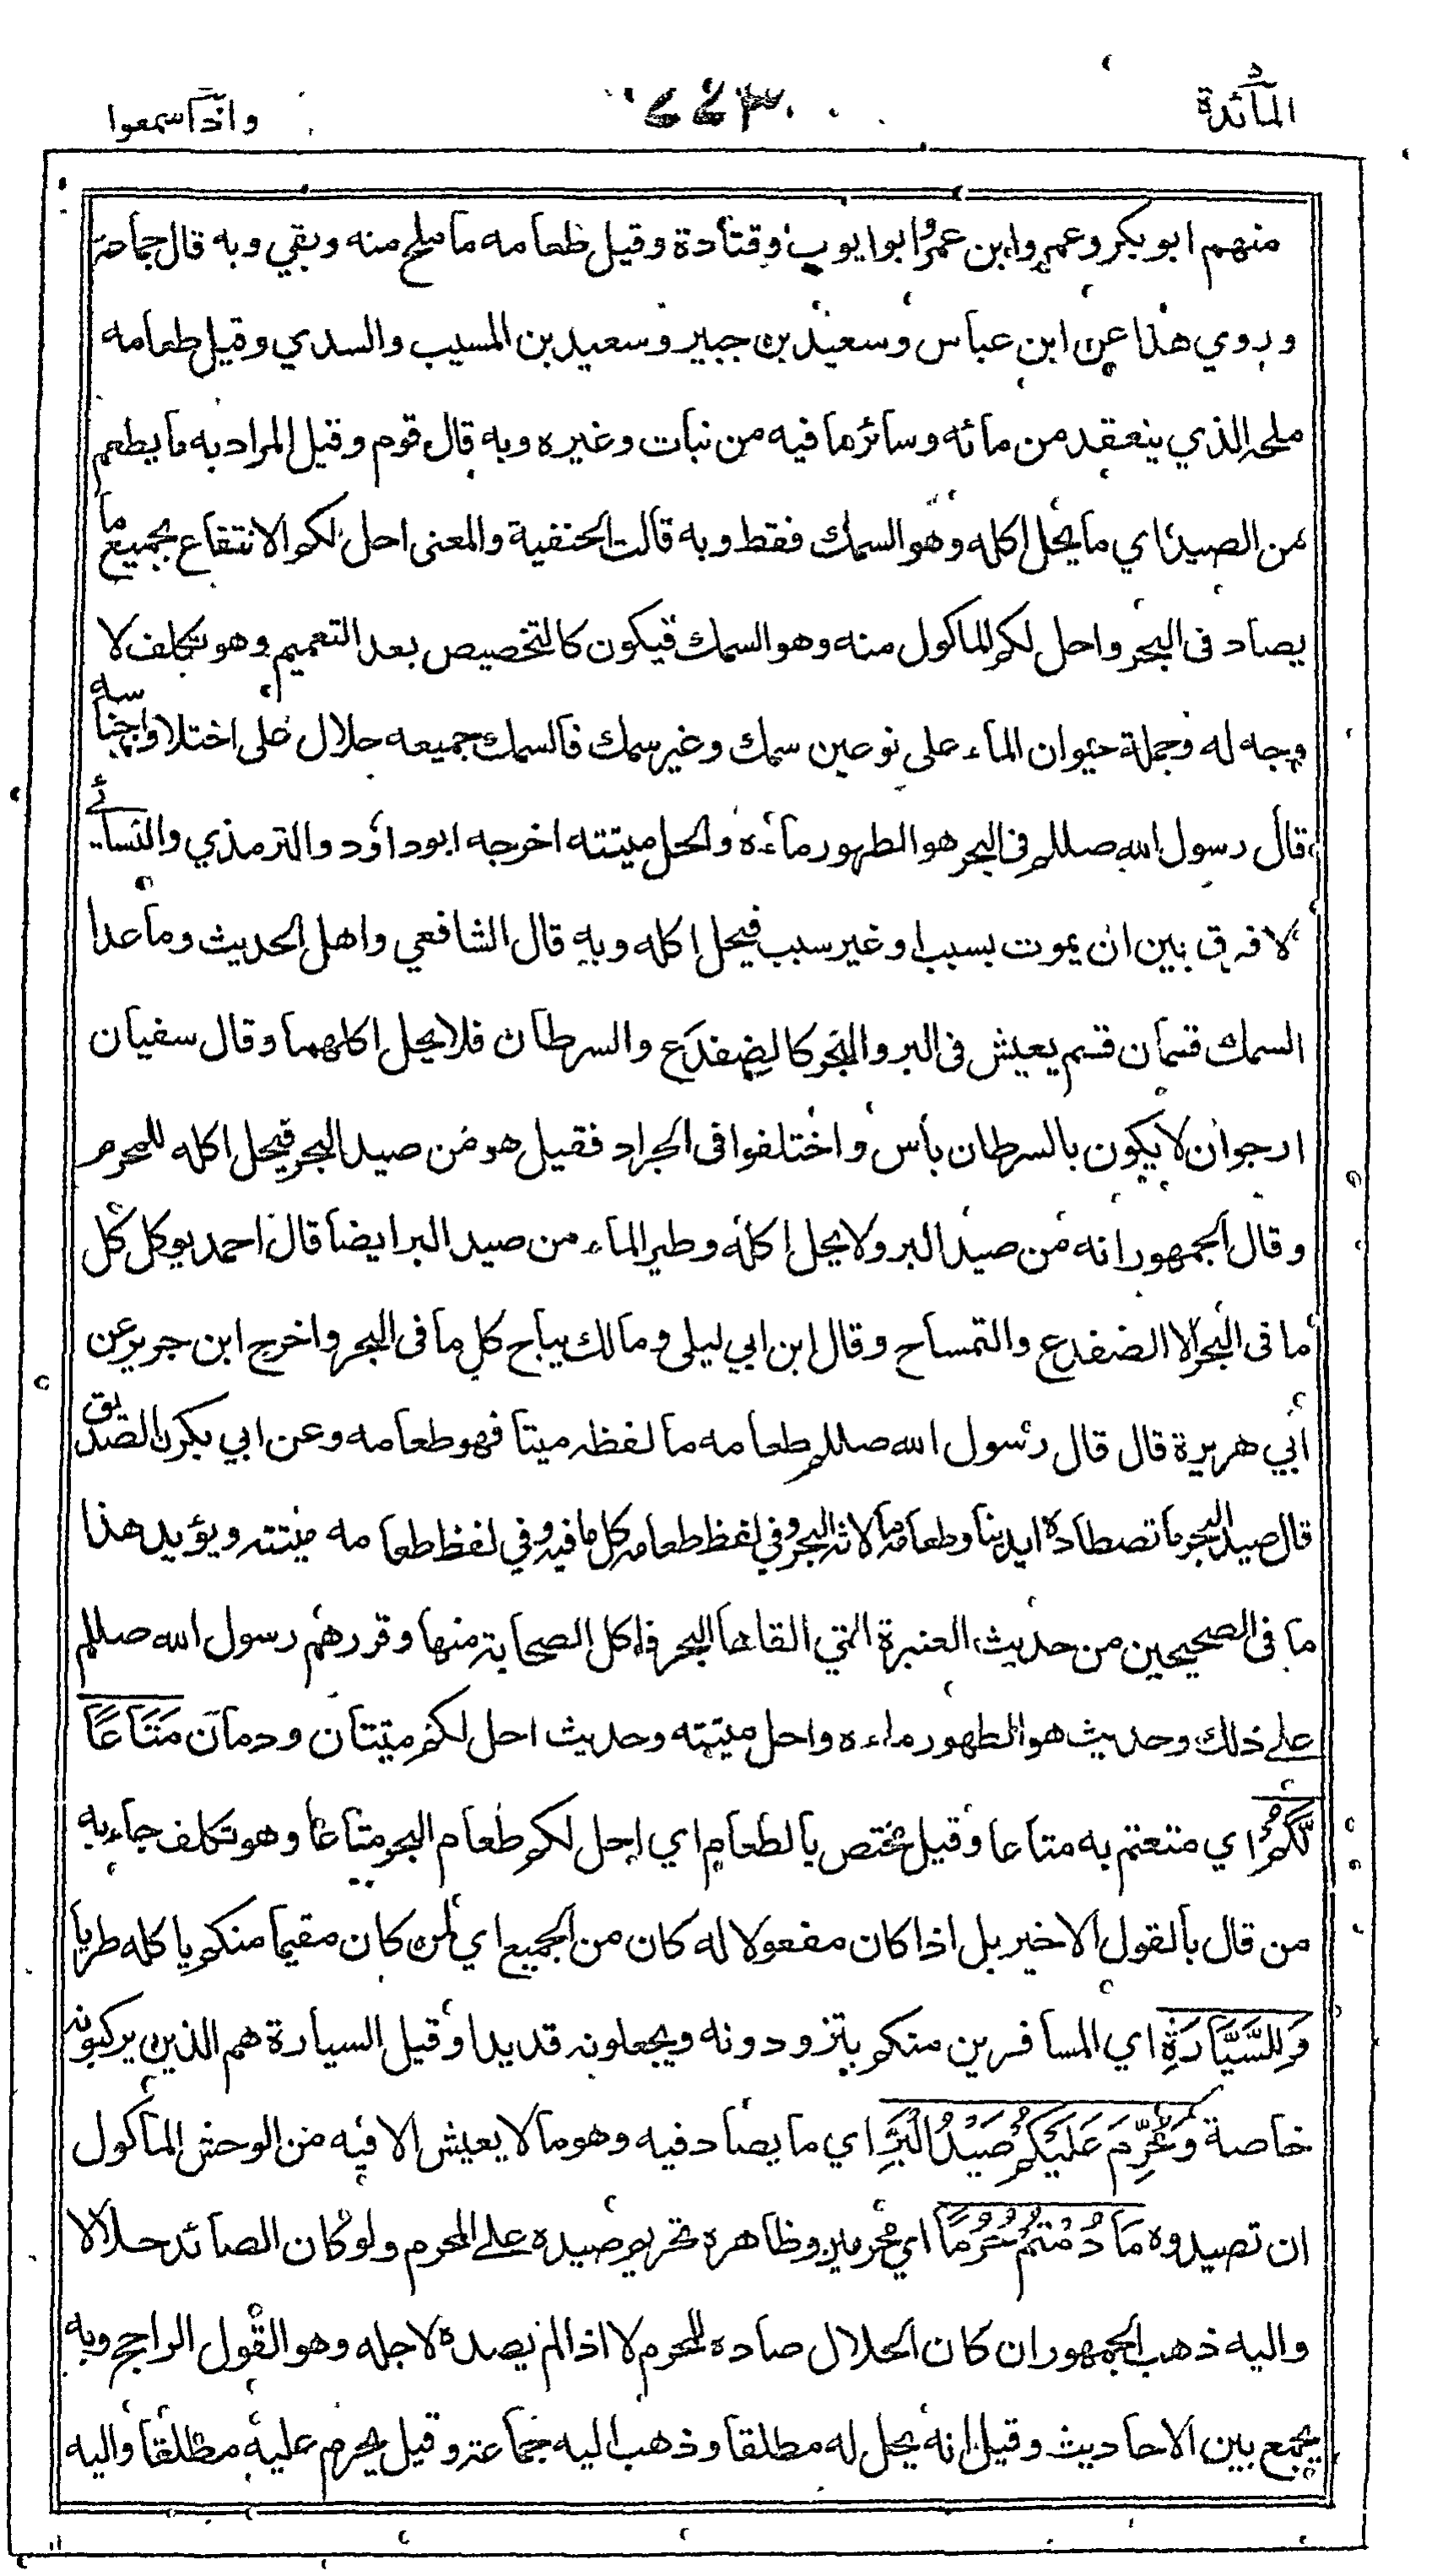 المآئدة
٤٤٣
واذآ سمعوا
منهم ابو بكر وعمر وابن عمر وابو ايوب وقتادة وقيل طعامه ما ملح منه وبقي وبه قال جماعة
وروي هذا عن ابن عباس وسعيد بن جبير وسعيد بن المسيب والسدي وقيل طعامه
ملحه الذي ينعقد من مائه وسائر ما فيه من نبات وغيره وبه قال قوم وقيل المراد به ما يطعم
من الصيد اي ما يحل اكله وهو السمك فقط وبه قالت الحنفية والمعنى احل لكم الانتفاع بجميع ما
يصاد فى البحر واحل لكم الماكول منه وهو السمك فيكون كالتخصيص بعد التعميم وهو تكلف لا
وجه له وجملة حيوان الماء على نوعين سمك وغير سمك فالسمك جميعه حلال على اختلاف اجناسه
قال رسول الله صللم فى البحر هو الطهور ماءه والحل ميتته اخرجه ابو داؤد والترمذي والنسائي
لا فرق بين ان يموت بسبب او غير سبب فيحل اكله وبه قال الشافعي واهل الحديث وما عدا
السمك قسمان قسم يعيش فى البر والبحر كالضفدع والسرطان فلا يحل اكلهما وقال سفيان
ارجو ان لا يكون بالسرطان بأس واختلفوا فى الجراد فقيل هو من صيد البحر فيحل اكله للمحرم
وقال الجمهور انه من صيد البر ولا يحل اكله وطير الماء من صيد البر ايضا قال احمد يوكل كل
ما فى البحر الا الضفدع والتمساح وقال ابن ابي ليلى ومالك يباح كل ما فى البحر واخرج ابن جرير عن
أبي هريرة قال قال رسول الله صللم طعامه ما لفظه ميتا فهو طعامه وعن ابي بكرن الصديق
قال صيد البحر ما تصطاده ايدينا وطعامه ما لاثه البحر وفي لفظ طعامه كل ما فيه وفي لفظ طعامه ميتته ويؤيد هذا
ما فى الصحيحين من حديث العنبرة التي القاها البحر فاكل الصحابة منها وقررهم رسول الله صللم
على ذلك وحديث هو الطهور ماءه واحل ميتته وحديث احل لكم ميتتان ودمان مَتَاعًا
لَّكُمْ اي متعتم به متاعا وقيل مختص بالطعام اي احل لكم طعام البحر متاعا وهو تكلف جاء به
من قال بالقول الاخير بل اذا كان مفعولا له كان من الجميع اي لمن كان مقيما منكم يا كله طريا
وَلِلسَّيَّارَةِ اي المسافرين منكم يتزودونه ويجعلونه قديدا وقيل السيارة هم الذين يركبونه
خاصة وَحُرِّمَ عَلَيْكُمْ صَيْدُ الْبَرِّ اي ما يصاد فيه وهو ما لا يعيش الا فيه من الوحش الماكول
ان تصيدوه مَا دُمْتُمْ حُرُمًا اي محرمين وظاهره تحريم صيده على المحرم ولو كان الصائد حلالا
واليه ذهب الجمهور ان كان الحلال صاده للمحرم لا اذا لم يصده لاجله وهو القول الراجح وبه
يجمع بين الاحاديث وقيل انه يحل له مطلقا وذهب اليه جماعة وقيل يحرم عليه مطلقا واليه